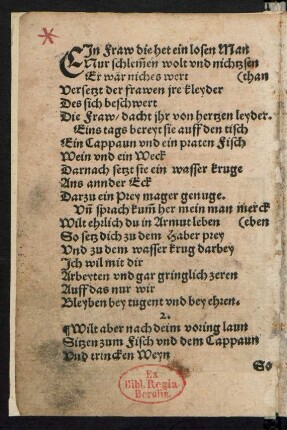 EIn Fraw die het ein losen Man
Nur schlem̃en wolt vnd nichtzsen
Er war niches wert (than
Versetzt der frawen jre kleyder
Des sich beschwert
Die Fraw/ dacht jhr von hertzen leyder.
Eins tags bereyt sie auff den tisch
Ein Cappaun vnd ein praten Fisch
Wein vnd ein Weck
Darnach setzt sie ein wasser kruge
Ans annder Eck
Darzu ein Prey mager genuge.
Vñ sprach kum̃ her mein man merck
Wilt ehrlich du in Armut leben (eben
So setz dich zu dem Haber prey
Vnd zu dem wasser krug darbey
Ich wil mit dir
Arbeyten vnd gar gringlich zeren
Auff das nur wir
Bleyben bey tugent vnd bey ehren.
2.
¶Wilt aber nach deim voring laun
Sitzen zum Fisch vnd dem Cappaun
Vnd trincken Weyn
So
Ex
Bibl. Regia
Berolin.